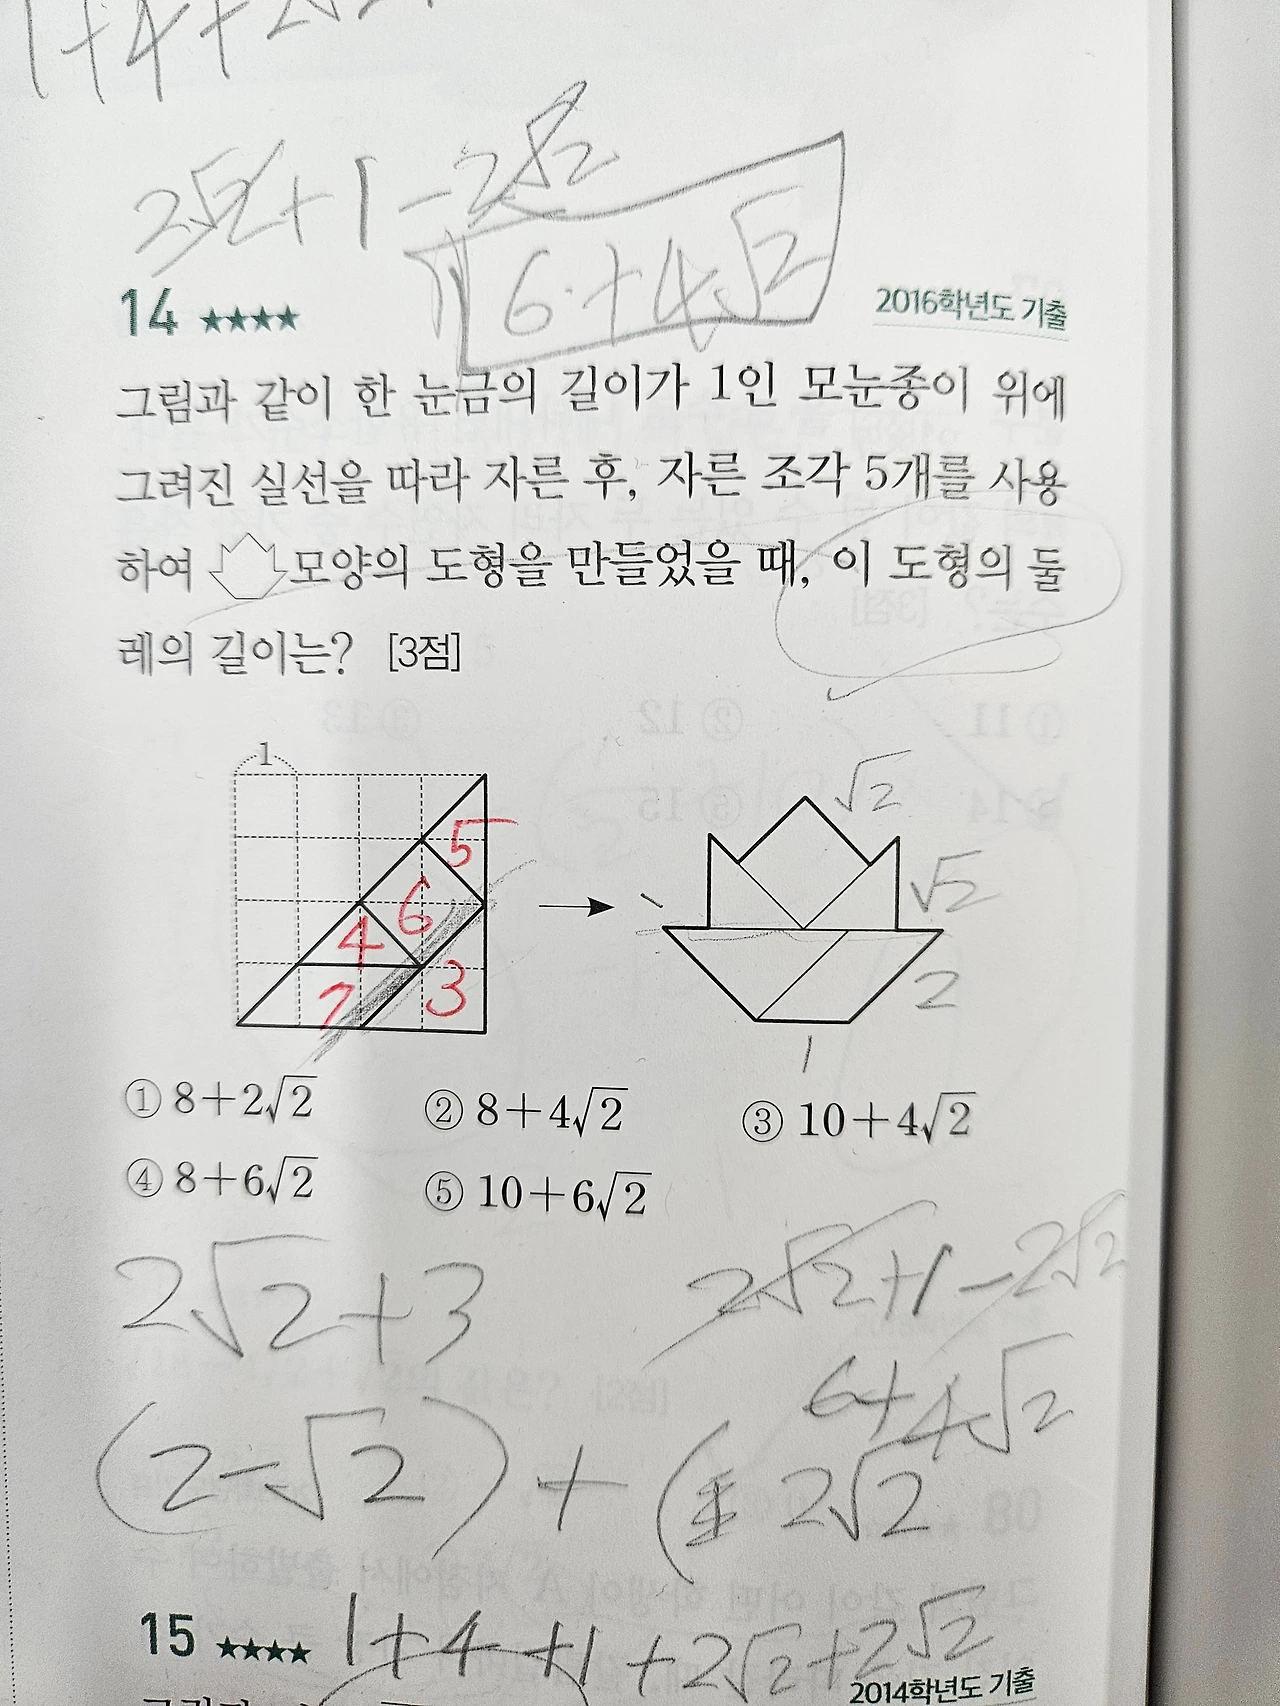 1+4+2√2
2√2+1-2√2
6+4√2
14 ★★★★
2016학년도 기출
그림과 같이 한 눈금의 길이가 1인 모눈종이 위에
그려진 실선을 따라 자른 후, 자른 조각 5개를 사용
하여 모양의 도형을 만들었을 때, 이 도형의 둘
레의 길이는? [3점]
1
5
6
4
7
3
√2
√2
2
1
① 8+2√2
② 8+4√2
③ 10+4√2
④ 8+6√2
⑤ 10+6√2
2√2+3
2√2+1-2√2
6+4√2
(2-√2)+(
2√2
15 ★★★★
1+4+1+2√2+2√2
2014학년도 기출